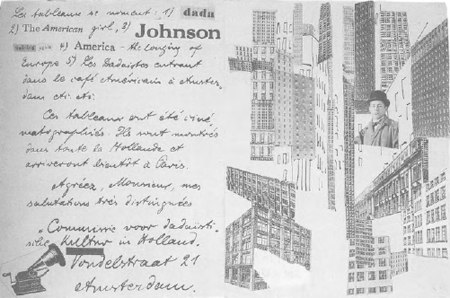 Les tableaux se nomment 1) dada
2) The American girl, 3) Johnson
4) America - the longing of
Europe 5) Les Dadaïstes entrant
dans le café Américain à Amster-
dam etc. etc.
Ces tableaux ont été ciné
matographiés. Ils sont montrés
dans toute la Hollande et
arriveront bientôt à Paris.
Agréez, Monsieur, mes
salutations très distinguées
"Commissie voor dadaisti-
sche Kultur in Holland.
Vondelstraat 21
Amsterdam.